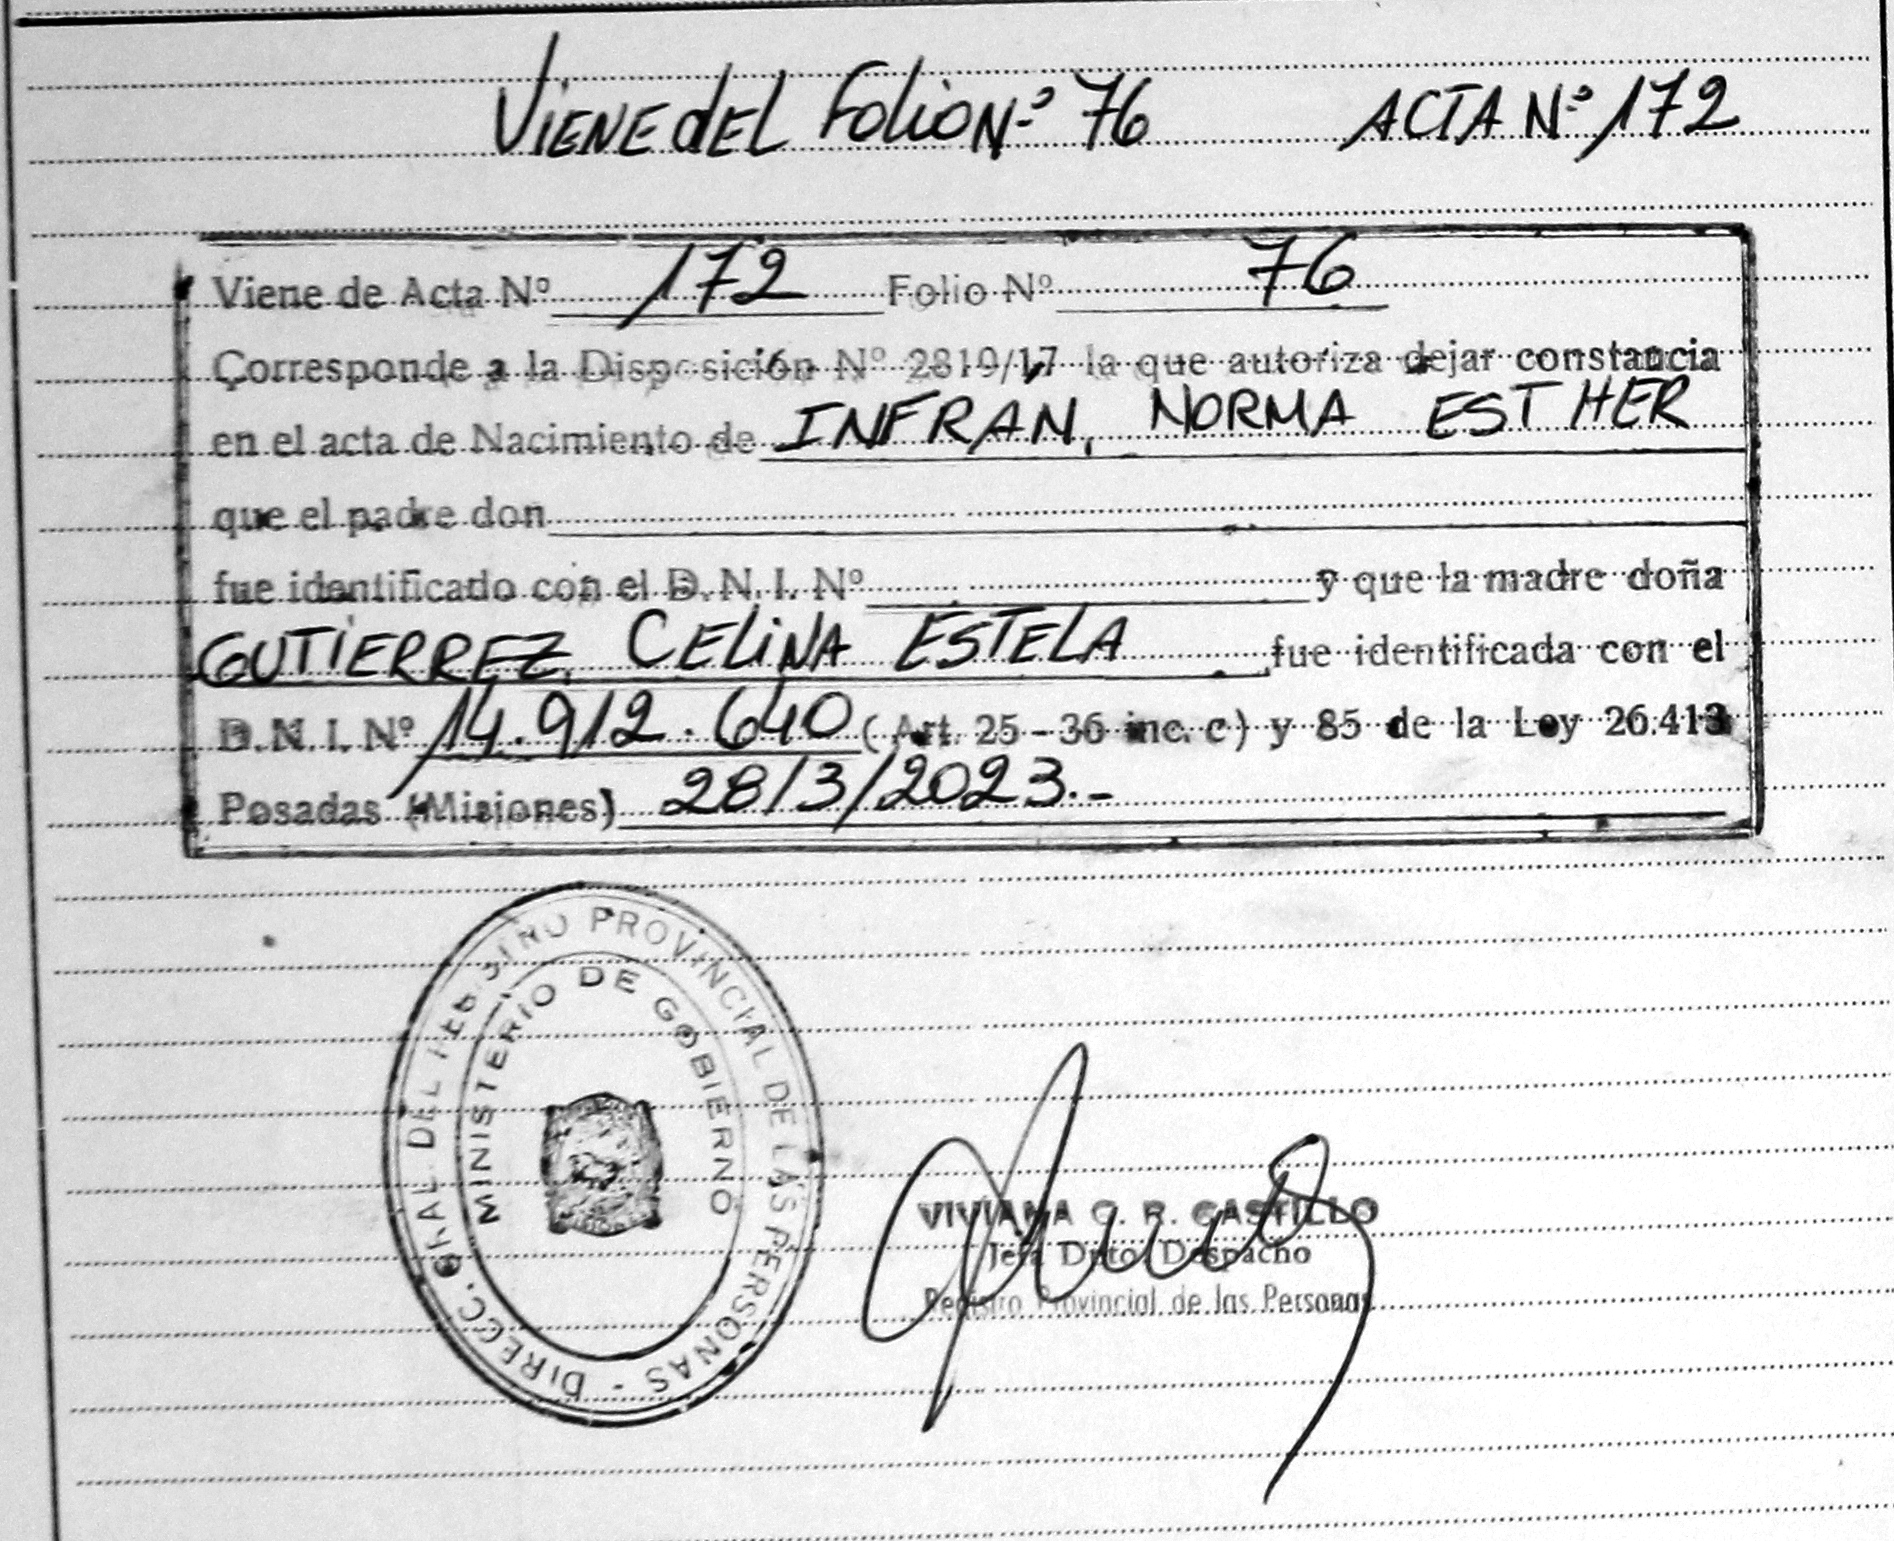 VIENE dEL Folio Nº 76 ACTA Nº 172
Viene de Acta Nº 172 Folio Nº 76
Corresponde a la Disposición Nº 2819/17 la que autoriza dejar constancia
en el acta de Nacimiento de INFRAN, NORMA ESTHER
que el padre don
fue identificado con el D.N.I. Nº y que la madre doña
GUTIERREZ, CELINA ESTELA fue identificada con el
D.N.I. Nº 14.912.640 (Art. 25-36 inc. c) y 85 de la Ley 26.413
Posadas (Misiones) 28/3/2023.-
DIRECC. GRAL DEL REGISTRO PROVINCIAL DE LAS PERSONAS -
MINISTERIO DE GOBIERNO
VIVIANA C. R. CASTILLO
Jefa Dpto. Despacho
Registro Provincial de las Personas